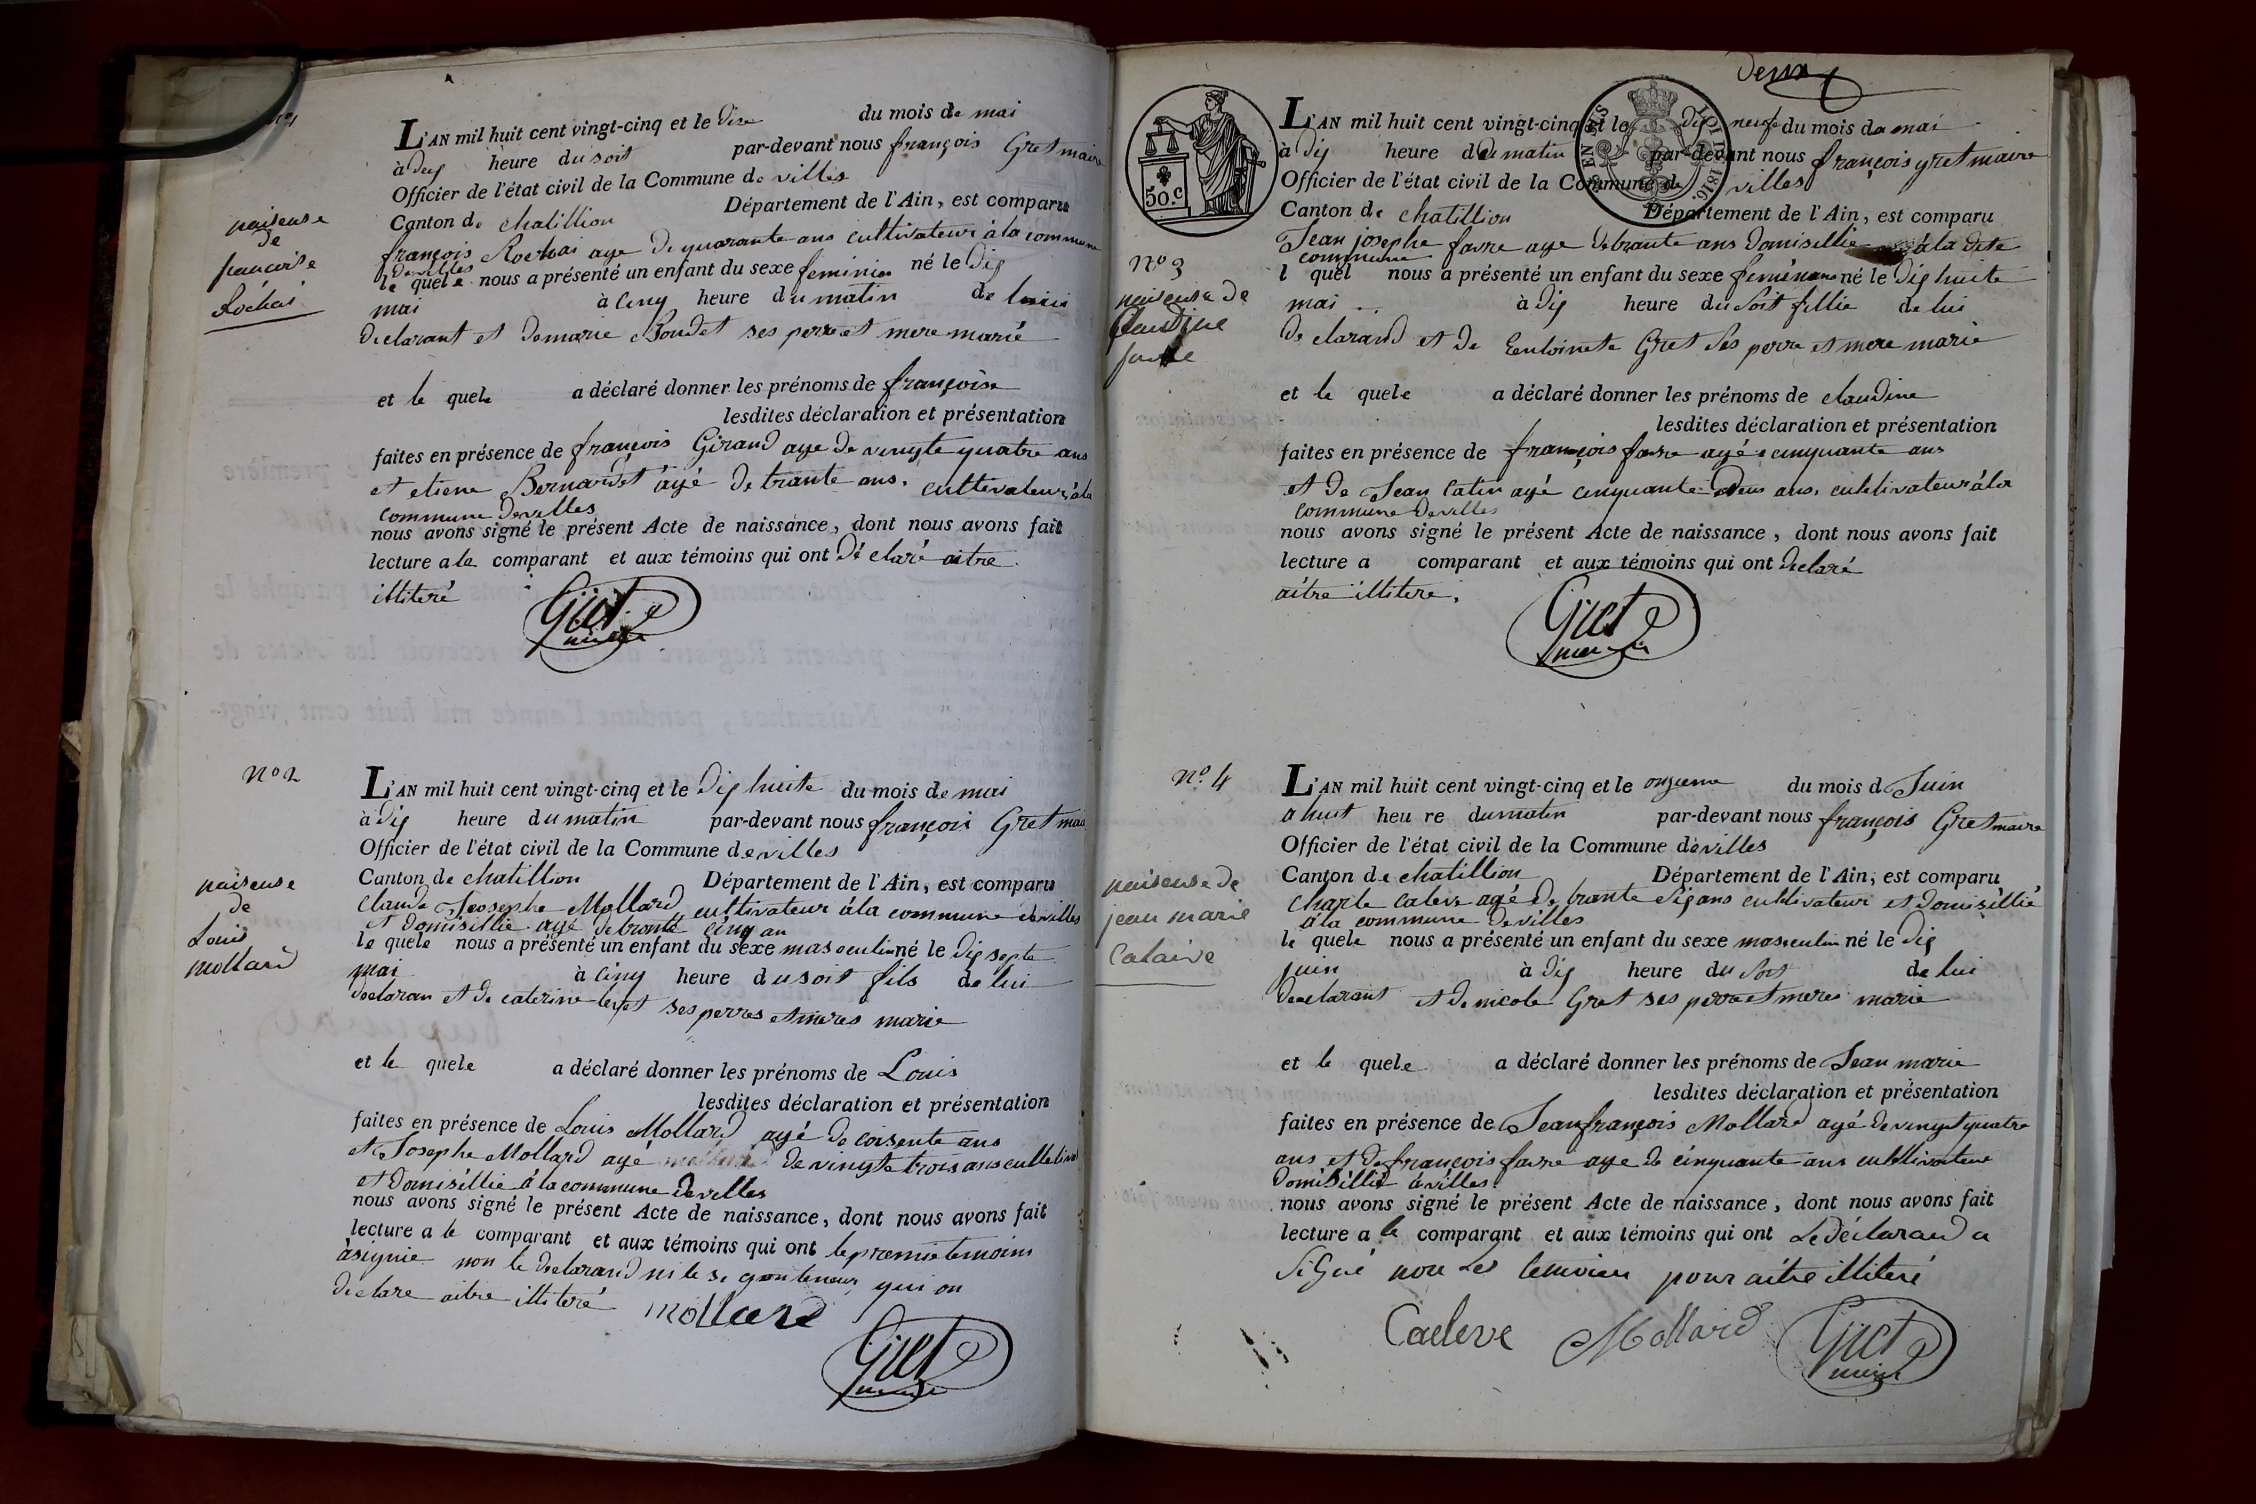 L'AN mil huit cent vingt-cinq et le du mois de mai
à dix heure du soit par-devant nous françois Gret maire
Officier de l'état civil de la Commune de villes
Canton de chatillion Département de l'Ain, est comparu
françois Rochai aye de quarante ans cultivateur à la commune
de villes
le quele nous a présenté un enfant du sexe feminin né le dix
mai à cinq heure du matin de lui
declarant et de marie Boudet ses perre et mere marié
et le quele a déclaré donner les prénoms de françoise
lesdites déclaration et présentation
faites en présence de françois Girand aye de vingte quatre ans
et etiene Bernardet ayé de trante ans. cultivateur à la
commune de villes
nous avons signé le présent Acte de naissance, dont nous avons fait
lecture a le comparant et aux témoins qui ont déclaré aitre
illiteré
Gret
naiseuse
de
francoise
Rochai
No 2
L'AN mil huit cent vingt-cinq et le dix huite du mois de mai
à dix heure du matin par-devant nous françois Gret
Officier de l'état civil de la Commune de villes
Canton de chatillion Département de l'Ain, est comparu
claude Joosephe Mollard cultivateur à la commune de villes
et domisillie ayé de trante cinq an
le quele nous a présenté un enfant du sexe masculin né le dix septe
mai à cinq heure du soit fils de lui
declaran et de caterine ses perres et meres marie
et le quele a déclaré donner les prénoms de Louis
lesdites déclaration et présentation
faites en présence de Louis Mollard ayé de coisente ans
et Josephe Mollard ayé de vingte trois ans
et domisillié à la commune de villes
nous avons signé le présent Acte de naissance, dont nous avons fait
lecture a le comparant et aux témoins qui ont le premie temoins
à signie non le declarand ni le qui on
declare aitre illiteré
Mollard
Gret
naiseuse
de
Louis
mollard
deux
50.c
LOI DE 1816.
L'AN mil huit cent vingt-cinq et le dix neufe du mois de mai
à dix heure de matin par-devant nous françois gret maire
Officier de l'état civil de la Commune de villes
Canton de chatillion Département de l'Ain, est comparu
Jean josephe favre aye de trante ans domisillie à la dite
commune
l quel nous a présenté un enfant du sexe né le dix huite
mai à dix heure du soit fillie de lui
declarand et de Gret ses perre et mere marie
et le quele a déclaré donner les prénoms de claudine
lesdites déclaration et présentation
faites en présence de françois favre ayé cinquante ans
et de Jean Catin ayé cinquante deus ans. cultivateur à la
commune de villes
nous avons signé le présent Acte de naissance, dont nous avons fait
lecture a comparant et aux témoins qui ont declaré
aitre illitere.
Gret
No 3
naiseuse de
Claudine
No. 4
L'AN mil huit cent vingt-cinq et le onzieme du mois d Juin
a huit heure du matin par-devant nous françois Gret maire
Officier de l'état civil de la Commune de villes
Canton de chatillion Département de l'Ain, est comparu
charle Caleve agé de trante six ans cultivateur et domisillié
à la commune de villes
le quele nous a présenté un enfant du sexe masculin né le dix
juin à dix heure du soit de lui
declarant et de nicole Gret ses perre et meres marie
et le quele a déclaré donner les prénoms de Jean marie
lesdites déclaration et présentation
faites en présence de Jean françois Mollard ayé de vingt quatre
ans et de françois favre aye de cinquante ans cultivateur
domisillié à villes.
nous avons signé le présent Acte de naissance, dont nous avons fait
lecture a le comparant et aux témoins qui ont Le déclarand a
signé non Les pour aitre illiteré
Caeleve Mollard Gret
naiseuse de
jean marie
Calaive